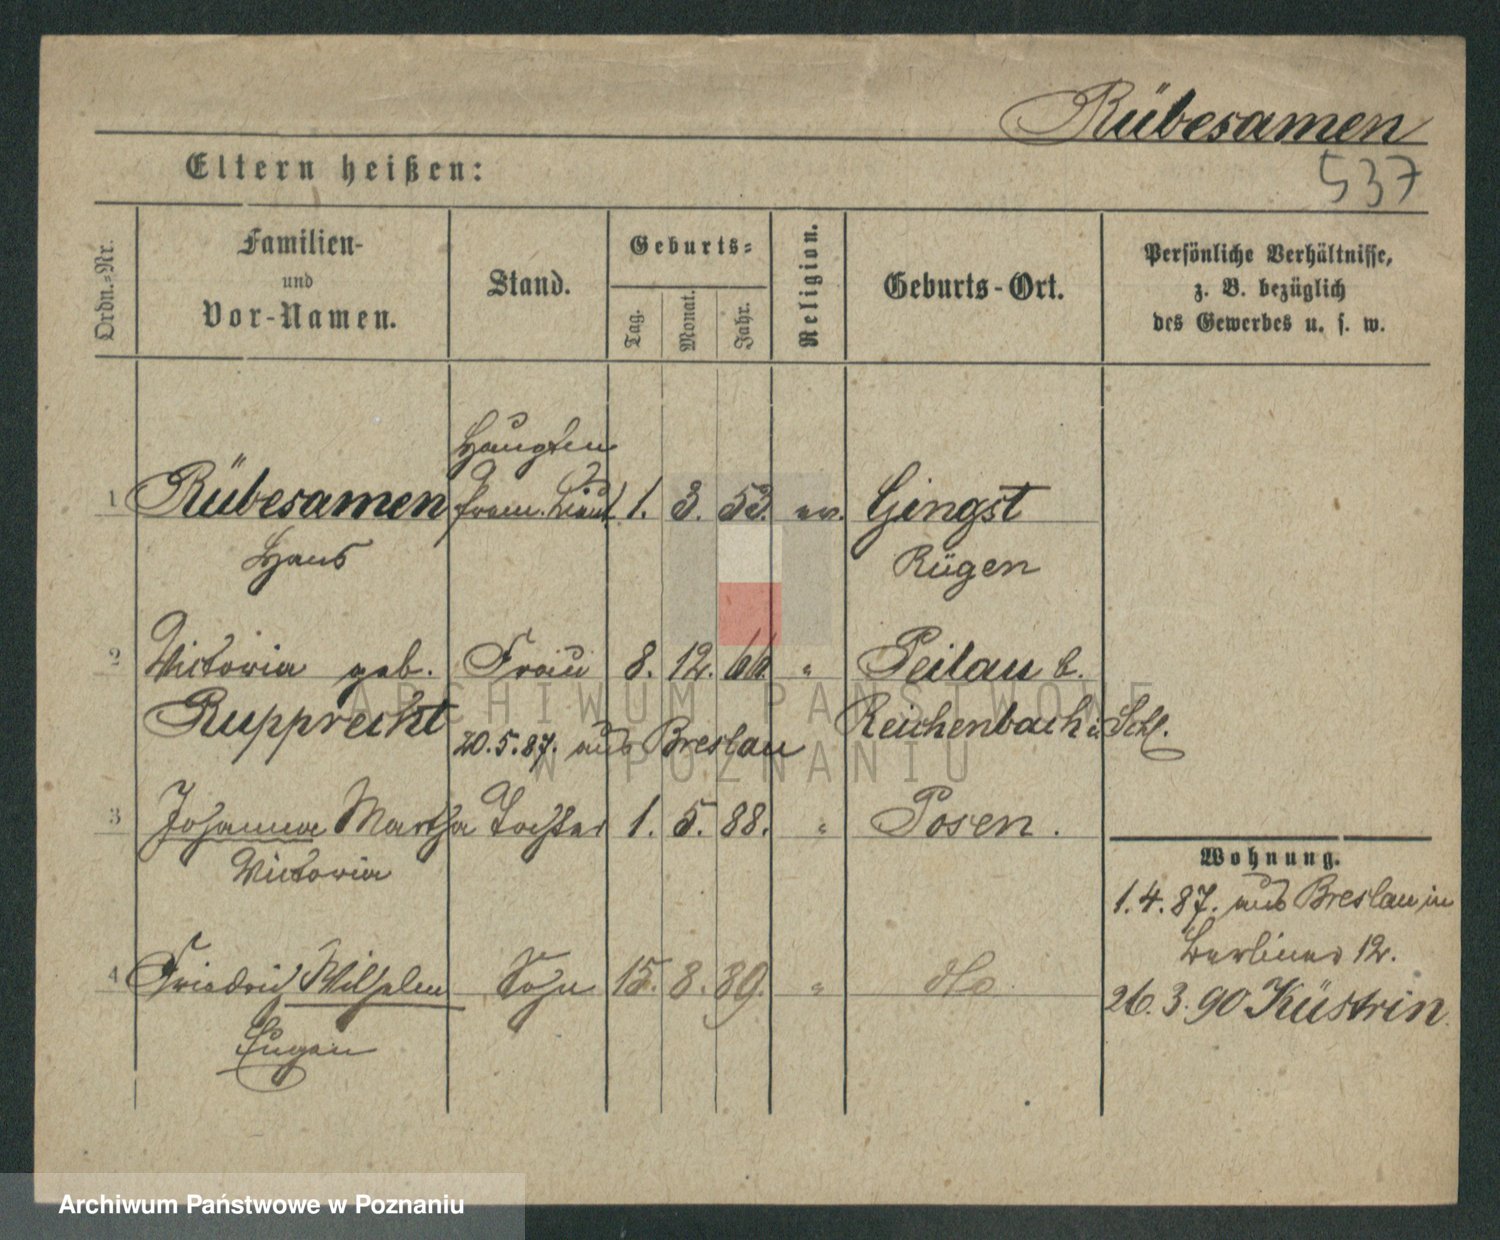 Rübesamen
537
Eltern heißen:
Ordn.-Nr.
Familien-
und
Vor-Namen.
Stand.
Geburts-
Tag.
Monat.
Jahr.
Religion.
Geburts-Ort.
Persönliche Verhältnisse,
z. B. bezüglich
des Gewerbes u. s. w.
Hauptm
1 Rübesamen Prem. Lieut. 1. 3. 53. ev. Gingst
Hans Rügen
2 Victoria geb. Frau 8. 12. 66. " Peilau b.
Rupprecht 20.5.87. aus Breslau Reichenbach i/Schl.
3 Johanna Martha Tochter 1. 5. 88. " Posen.
Victoria
Wohnung.
1.4.87. aus Breslau in
Berliner 12.
4 Friedrich Wilhelm Sohn 15. 8. 89. " do.
26.3.90 Küstrin.
Eugen
ARCHIWUM PAŃSTWOWE
W POZNANIU
Archiwum Państwowe w Poznaniu